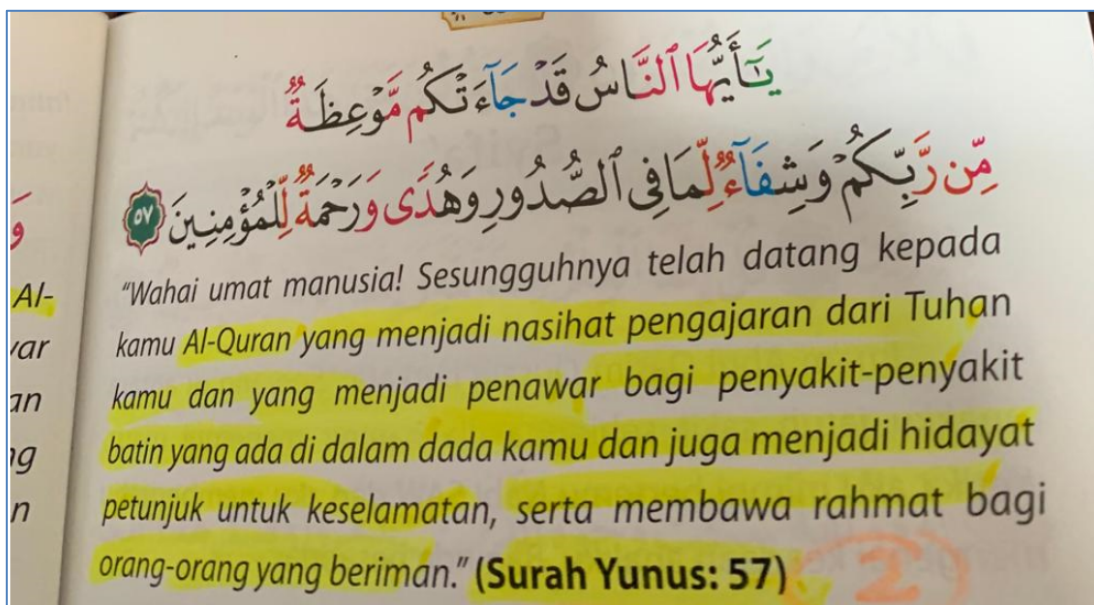 يَـٰٓأَيُّهَا ٱلنَّاسُ قَدْ جَآءَتْكُم مَّوْعِظَةٌ
مِّن رَّبِّكُمْ وَشِفَآءٌ لِّمَا فِى ٱلصُّدُورِ وَهُدًى وَرَحْمَةٌ لِّلْمُؤْمِنِينَ ٥٧
"Wahai umat manusia! Sesungguhnya telah datang kepada
kamu Al-Quran yang menjadi nasihat pengajaran dari Tuhan
kamu dan yang menjadi penawar bagi penyakit-penyakit
batin yang ada di dalam dada kamu dan juga menjadi hidayat
petunjuk untuk keselamatan, serta membawa rahmat bagi
orang-orang yang beriman." (Surah Yunus: 57)
2
Al-